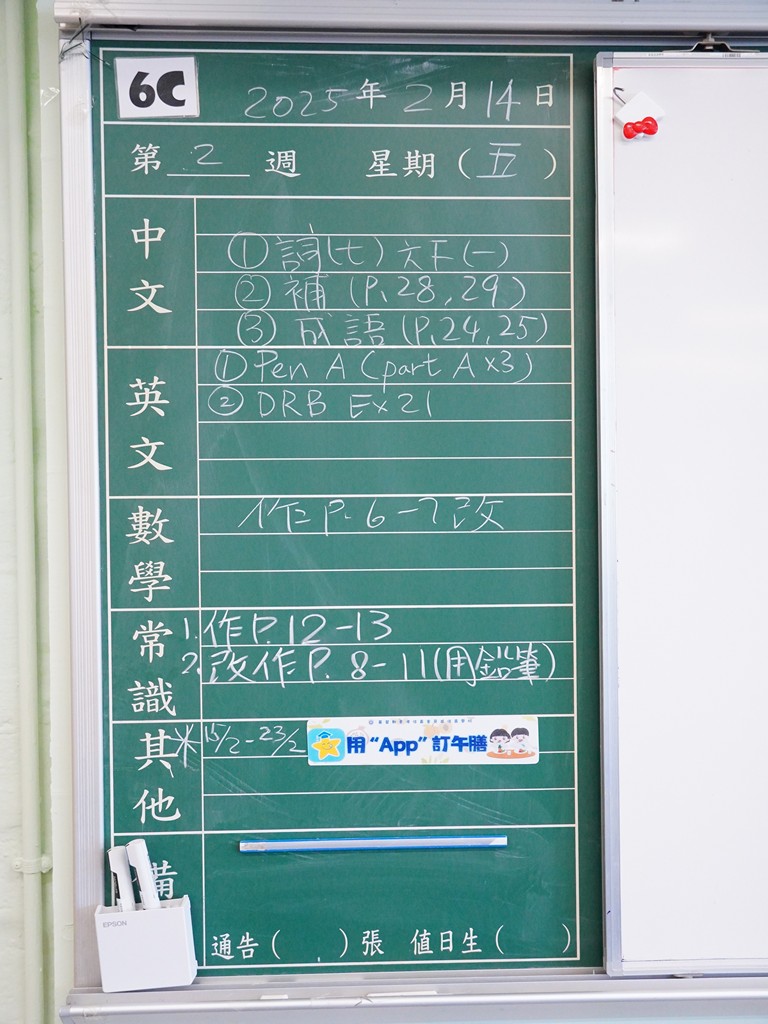 6C
2025年2月14日
第 2 週 星期(五)
中文
① 詞(七) 六下(一)
② 補 (P.28,29)
③ 成語 (P.24,25)
英文
① Pen A (part A x3)
② DRB Ex 21
數學
作 P. 6-7 改
常識
1. 作 P. 12-13
2. 改作 P. 8-11 (用鉛筆)
其他
* 15/2-23/2
用“App”訂午膳
備
EPSON
通告( )張 值日生( )